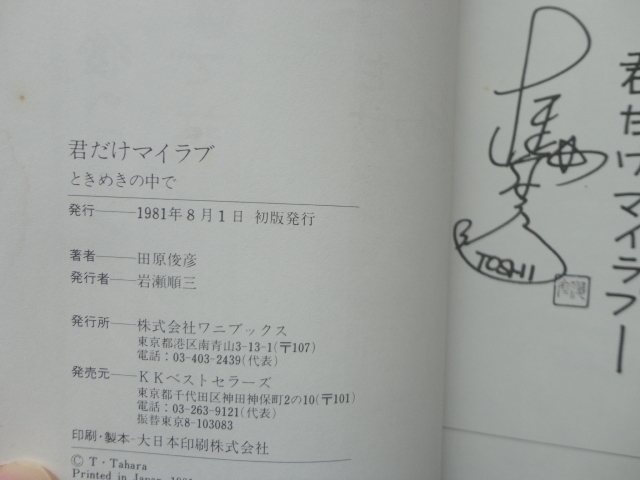 君だけマイラブ
ときめきの中で
発行――1981年8月1日 初版発行
著者――田原俊彦
発行者――岩瀬順三
発行所――株式会社ワニブックス
東京都港区南青山3-13-1(〒107)
電話:03-403-2439(代表)
発売元――KKベストセラーズ
東京都千代田区神田神保町2の10(〒101)
電話:03-263-9121(代表)
振替東京8-103083
印刷・製本―大日本印刷株式会社
© T・Tahara
Printed in Japan
君だけマイラブ
TOSHI